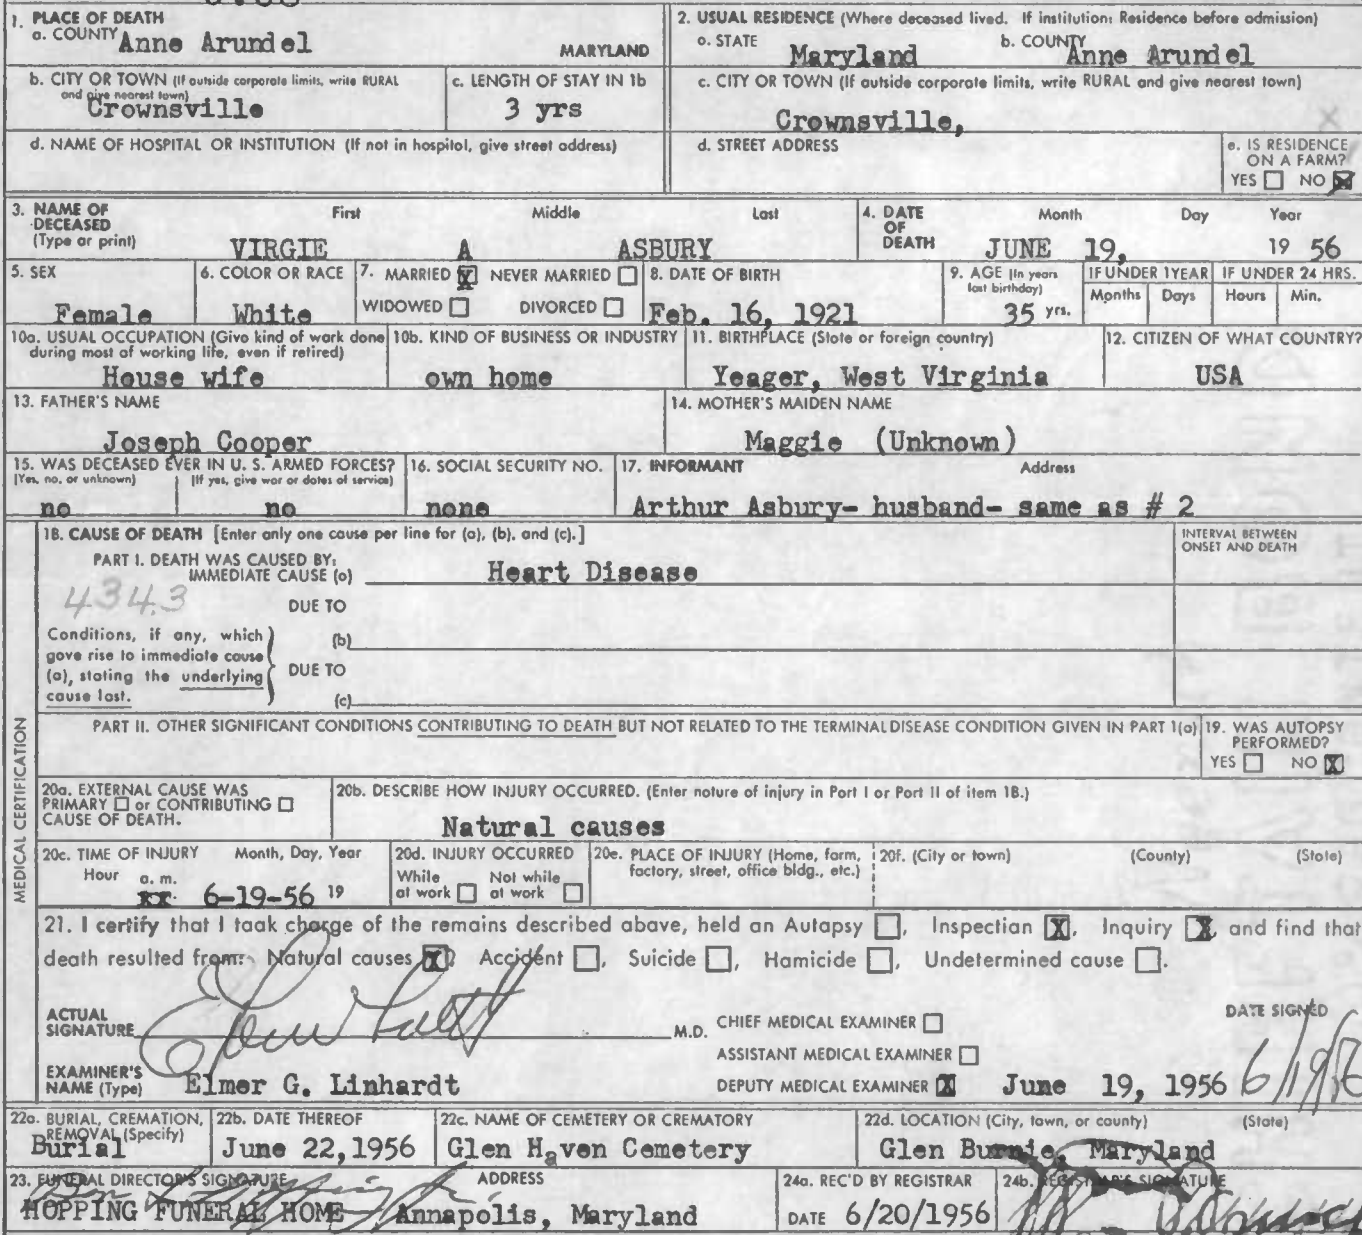 1. PLACE OF DEATH
a. COUNTY Anne Arundel MARYLAND
2. USUAL RESIDENCE (Where deceased lived. If institution: Residence before admission)
a. STATE Maryland b. COUNTY Anne Arundel
b. CITY OR TOWN (If outside corporate limits, write RURAL and give nearest town) Crownsville
c. LENGTH OF STAY IN 1b 3 yrs
c. CITY OR TOWN (If outside corporate limits, write RURAL and give nearest town)
Crownsville,
d. NAME OF HOSPITAL OR INSTITUTION (If not in hospital, give street address)
d. STREET ADDRESS
e. IS RESIDENCE ON A FARM?
YES NO X
3. NAME OF DECEASED (Type or print) First Middle Last
VIRGIE A ASBURY
4. DATE OF DEATH Month Day Year
JUNE 19, 19 56
5. SEX Female
6. COLOR OR RACE White
7. MARRIED X NEVER MARRIED
WIDOWED DIVORCED
8. DATE OF BIRTH Feb. 16, 1921
9. AGE (In years last birthday) 35 yrs.
IF UNDER 1 YEAR Months Days
IF UNDER 24 HRS. Hours Min.
10a. USUAL OCCUPATION (Give kind of work done during most of working life, even if retired)
House wife
10b. KIND OF BUSINESS OR INDUSTRY
own home
11. BIRTHPLACE (State or foreign country)
Yeager, West Virginia
12. CITIZEN OF WHAT COUNTRY?
USA
13. FATHER'S NAME
Joseph Cooper
14. MOTHER'S MAIDEN NAME
Maggie (Unknown)
15. WAS DECEASED EVER IN U. S. ARMED FORCES?
(Yes, no, or unknown) (If yes, give war or dates of service)
no no
16. SOCIAL SECURITY NO.
none
17. INFORMANT Address
Arthur Asbury- husband- same as # 2
18. CAUSE OF DEATH [Enter only one cause per line for (a), (b), and (c).]
INTERVAL BETWEEN ONSET AND DEATH
PART I. DEATH WAS CAUSED BY:
IMMEDIATE CAUSE (a) Heart Disease
434.3
DUE TO
Conditions, if any, which gave rise to immediate cause (a), stating the underlying cause last.
(b)
DUE TO
(c)
MEDICAL CERTIFICATION
PART II. OTHER SIGNIFICANT CONDITIONS CONTRIBUTING TO DEATH BUT NOT RELATED TO THE TERMINAL DISEASE CONDITION GIVEN IN PART 1(a)
19. WAS AUTOPSY PERFORMED?
YES NO X
20a. EXTERNAL CAUSE WAS PRIMARY or CONTRIBUTING CAUSE OF DEATH.
20b. DESCRIBE HOW INJURY OCCURRED. (Enter nature of injury in Part I or Part II of item 18.)
Natural causes
20c. TIME OF INJURY Month, Day, Year
Hour a. m.
6-19-56 19
20d. INJURY OCCURRED
While at work Not while at work
20e. PLACE OF INJURY (Home, farm, factory, street, office bldg., etc.)
20f. (City or town) (County) (State)
21. I certify that I took charge of the remains described above, held an Autopsy , Inspection X, Inquiry X, and find that
death resulted from: Natural causes X, Accident , Suicide , Homicide , Undetermined cause .
ACTUAL SIGNATURE M.D.
CHIEF MEDICAL EXAMINER
DATE SIGNED
ASSISTANT MEDICAL EXAMINER
EXAMINER'S NAME (Type) Elmer G. Linhardt
DEPUTY MEDICAL EXAMINER X June 19, 1956
22a. BURIAL, CREMATION, REMOVAL (Specify)
Burial
22b. DATE THEREOF
June 22,1956
22c. NAME OF CEMETERY OR CREMATORY
Glen Haven Cemetery
22d. LOCATION (City, town, or county) (State)
Glen Burnie, Maryland
23. FUNERAL DIRECTOR'S SIGNATURE ADDRESS
HOPPING FUNERAL HOME Annapolis, Maryland
24a. REC'D BY REGISTRAR
DATE 6/20/1956
24b. REGISTRAR'S SIGNATURE